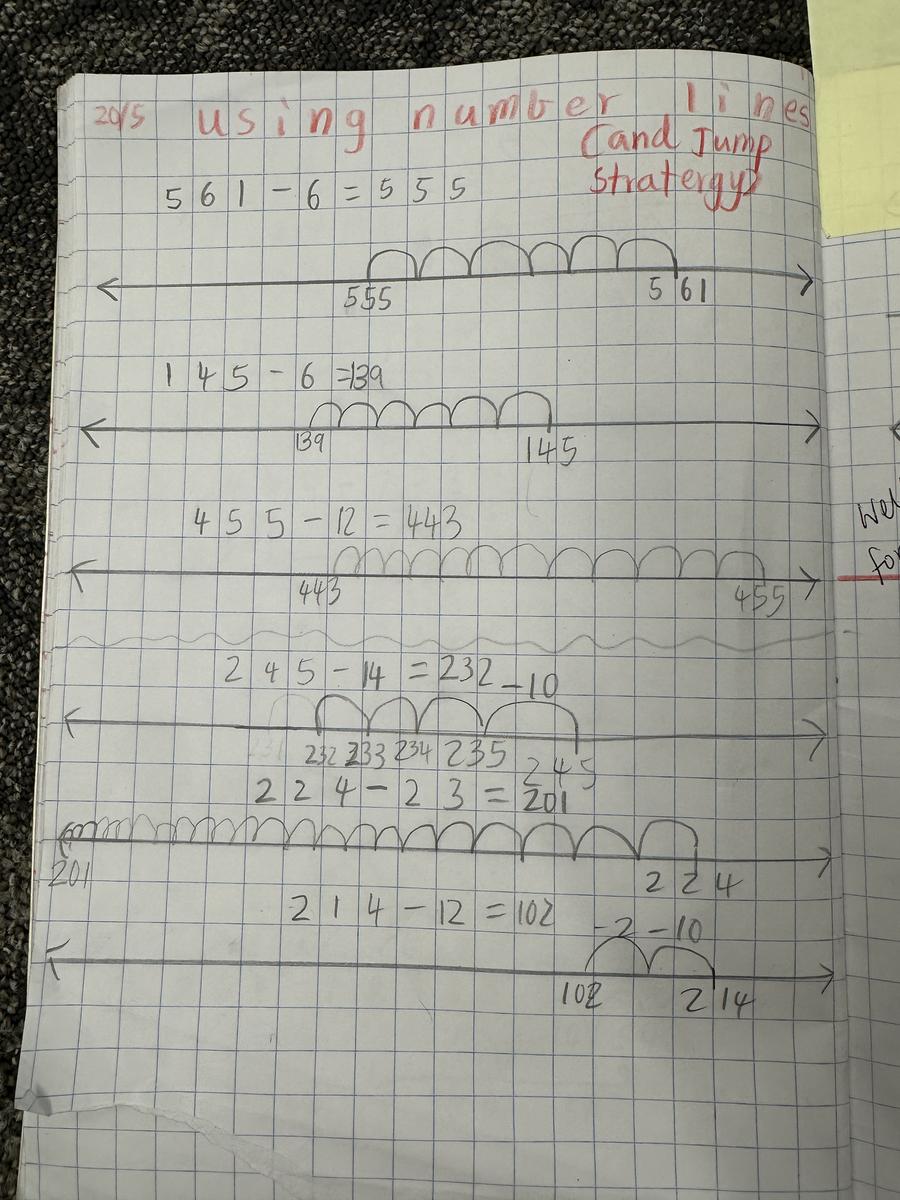 20/5 using number lines
(and Jump
Stratergy)
561 - 6 = 555
555 561
145 - 6 = 139
139 145
455 - 12 = 443
443 455
245 - 14 = 232
-10
232 233 234 235 245
224 - 23 = 201
201 224
214 - 12 = 102
-2 -10
102 214